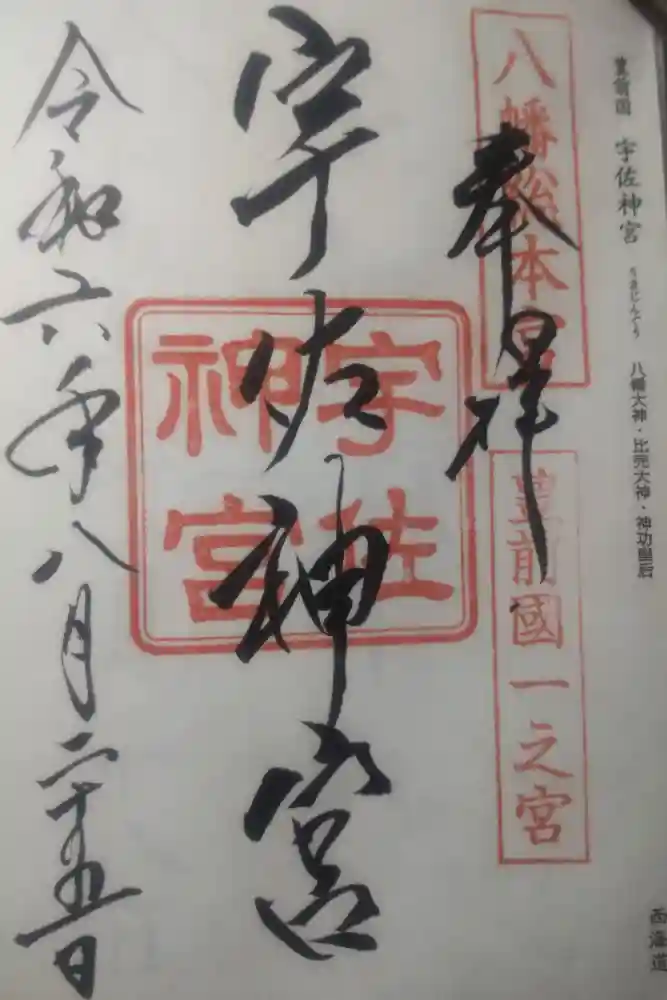 豊前国 宇佐神宮 うさじんぐう 八幡大神・比売大神・神功皇后
西海道
八幡総本宮
豊前國一之宮
奉拝
宇佐神宮
宇佐
神宮
令和六年八月二十五日